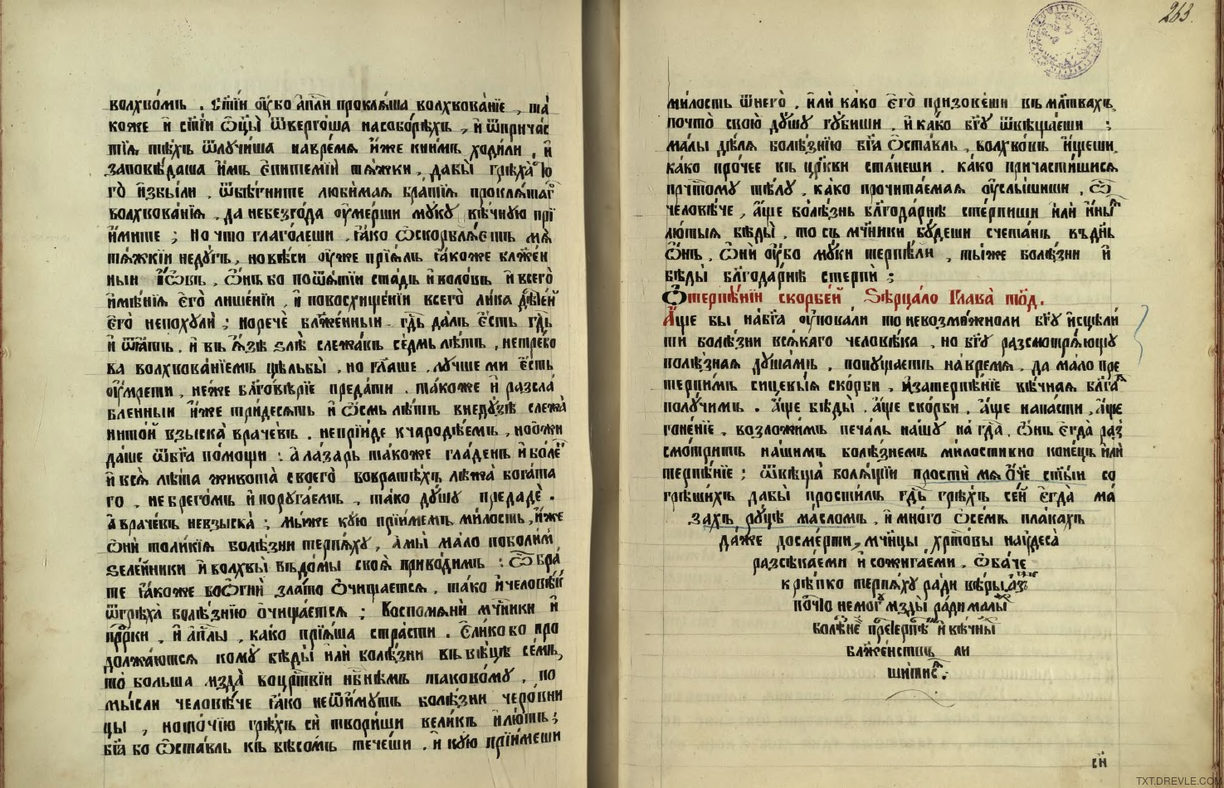 волхво́мъ . ст҃і́и оу҆́бо а҆пⷭ҇ли проклѧ́ша волхвова́нїе , та́
коже и҆ ст҃і́и ѻ҆ц҃ы̀ ѿверго́ша насобо́рѣхъ , и҆ ѿпричас
тїѧ тѣ́хъ ѿлучи́ша навре́мѧ и҆́же книмъ ходи́ли , и҆
заповѣ́даша и҆̀мъ є҆питемїѝ тѧ́жки , да́бы грѣха̀ то
го̀ и҆збы́ли . ѿбѣ́гните люби́маѧ бра́тїѧ проклѧ́таг
волхвова́нїѧ , да небезго́да оу҆ме́рши му́ку вѣ́чную прї
и́мите ; но что глаго́леши , ꙗ҆́ко ѡ҆скорблѧ́етъ мѧ̀
тѧ́жкїи недꙋ́гъ , новѣ́си оу҆́же прїѧ́лъ ꙗ҆́коже бл҃же́н
ныи і҆́ѡвъ , ѻ҆́нъ бо поѿѧ́тїи ста́дъ и҆ воло́въ и҆ всего̀
и҆мѣ́нїѧ є҆го̀ лише́нїи , и҆ повосхище́нїи всего̀ лика дѣте́й
є҆го̀ непохули̑ ; норече̑ бл҃же́нныи . гдⷭ҇ь да́лъ є҆́сть гдⷭ҇ь
и҆ ѿѧ́тъ . и҆ въ ꙗ҆́звѣ ѕлѣ̀ слежа́въ се́дмь лѣ́тъ , нетре́бо
ва волхвова́нїемъ цѣльбы̀ , но гл҃аше . лꙋ́чше ми є҆́сть
оу҆мре́ти , не́же бл҃говѣ́рїе преда́ти . та́коже и҆ разсла́
бленныи и҆́же три́десѧть и҆ ѻ҆́смь лѣ́тъ внедꙋ́зѣ слежа̀
нито́й взыска̀ враче́въ . непрїи́де к чародѣ́емъ , но ѡ҆жи
да́ше ѿбг҃а по́мощи : а҆ ла́зарь та́коже гла́денъ и҆ боле́нъ
и҆ всѧ̀ лѣ́та живота̀ своего̀ вовратѣ́хъ лѣжа̀ бога́та
го . небрего́мъ и҆ поруга́емъ , та́ко дꙋ́шу предаде̑ .
а҆ враче́въ невзыска̀ ; мы́же кую прїи́мемъ ми́лость , и҆́же
ѻ҆ни̑ толи́кїѧ болѣ́зни терпѧ́ху , а҆ мы̀ ма́ло поболи́м
ѕеле́йники и҆ волхвы̀ вѣ́домы своѧ̀ приво́димъ : ѽ бра́
те ꙗ҆́коже воѻ҆гнѝ зла́то ѻ҆чища́ется , та́ко и҆ человѣ́къ
ѿгрѣха̀ болѣ́знїю ѻ҆чища́ется ; воспомѧни̑ мч҃ники и҆
прⷪ҇ро́ки , и҆ а҆пⷭ҇лы , ка́ко прїѧ́ша стра́сти . є҆ли́ко бо про
должа́ютсѧ кому̀ бѣ́ды и҆лѝ болѣ́зни въ вѣ́цѣ се́мъ ,
то̀ бо́льша мзда̀ воцр҃твїи нб҃нѣмъ таково́му , но
мы́сли человѣ́че ꙗ҆́ко неѿи́мутъ болѣ́зни черо́вни
цы , ното́чїю грѣ́хъ сѝ твори́ши вели́къ и҆ лю́тъ ;
бг҃а бо ѡ҆ста́вль къ бѣсо́мъ тече́ши , и҆ кꙋ́ю прїи́меши
263.
ми́лость ѿнего̀ . и҆лѝ ка́ко є҆го̀ призове́ши въ мл҃твахъ
почто̀ свою̀ дꙋ́шу гꙋ́биши , и҆ ка́ко бг҃у ѿвѣща́еши ;
ма́лы дѣ́лѧ болѣ́знїю бг҃а ѡ҆ста́вль , волхво́въ и҆́щеши .
ка́ко про́чее въ цр҃кви ста́неши . ка́ко причасти́шисѧ
прⷱ҇тому тѣ́лу , ка́ко прочита́емаѧ оу҆слы́шиши , ѽ
человѣ́че , а҆́ще болѣ́знь бл҃года́рнѣ сте́рпиши и҆лѝ и҆́ныѧ
лю́тыѧ бѣ́ды , то съ мч҃ники бꙋ́деши счета́нъ въ дн҃ь
ѻ҆́нъ , ѻ҆нѝ оу҆́бо мꙋ́ки терпѣ́ли , ты́же болѣ́зни и҆
бѣ́ды бл҃года́рнѣ стерпѝ ;
Ѡ҆терпѣ́нїи скорбе́й ѕерца́ло Глава̀ то҃д .
А҆́ще бы на́бг҃а оу҆пова́ли то невозмо́жноли бг҃у и҆сцѣли
ти болѣ́зни всѧ́каго человѣ́ка , но бг҃у разсмотрѧ́ющу
поле́знаѧ дꙋша́мъ , попуща́етъ навре́мѧ , да ма́ло пре
те́рпимъ сицевы́ѧ ско́рби , и҆затерпѣ́нїе вѣ́чнаѧ бл҃гаѧ
полу́чимъ . а҆́ще бѣ́ды , а҆́ще ско́рби , а҆́ще напа́сти , а҆́ще
гоне́нїе , возложи́мъ печа́ль на́шу на гдⷭ҇а , ѻ҆́нъ є҆гда̀ раз
смо́тритъ на́шимъ болѣ́знемъ ми́лостивно коне́цъ и҆лѝ
терпѣ́нїе ; ѿвѣща̀ болѧ́щїи простѝ мѧ ѻ҆́ч҃е ст҃ы́и со
грѣши́хъ да́бы прости́лъ гдⷭ҇ь грѣ́хъ се́й є҆гда̀ ма́
захъ рꙋ́цѣ ма́сломъ , и҆ мно́го ѡ҆се́мъ пла́кахъ
да́же досме́рти , мч҃ицы хрⷭ҇то́вы на́йдеса
разсѣка́еми и҆ сожига́еми . ѻ҆ба́че
крѣ́пко терпѧ́ху ра́ди вѣ́ры , а҆зъ
почто̀ немогꙋ̀ мзды̀ ра́ди малы́ѧ
болѣ́зни претерпѣ́ти и҆ вѣ́чныѧ
бл҃же́нствъ ли
ши́тисѧ .
TXT.DREVLE.COM